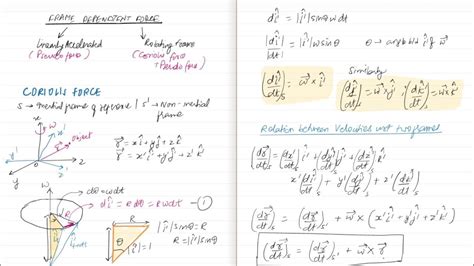 FRAME DEPENDENT FORCE
Linearly Accelerated
(Pseudo force)
Rotating Frame
(Coriolis force + Pseudo force)
CORIOLIS FORCE
S → inertial frame of reference | S' → Non-inertial frame
object
r⃗ = xî + yĵ + zk̂
r⃗ = x'î' + y'ĵ' + z'k̂'
dθ = ωdt
dî' = R dθ = R ωdt —①
|î'| sinθ
R = |î'| sinθ
|î'| = 1
dî' = |î'| sinθ ωdt
|dî'/dt| = |î'| ω sinθ θ → angle b/w î' & ω⃗
(dî'/dt)s = ω⃗ × î'
Similarly
(dĵ'/dt)s = ω⃗ × ĵ', (dk̂'/dt)s = ω⃗ × k̂'
Relation between Velocities wrt two frames
(dr⃗/dt)s = (dx'/dt) î' + (dy'/dt) ĵ' + (dz'/dt) k̂' +
x'(dî'/dt) + y'(dĵ'/dt) + z'(dk̂'/dt)
(dr⃗/dt)s = (dr⃗/dt)s' + ω⃗ × (x'î' + y'ĵ' + z'k̂')
(dr⃗/dt)s = (dr⃗/dt)s' + ω⃗ × r⃗